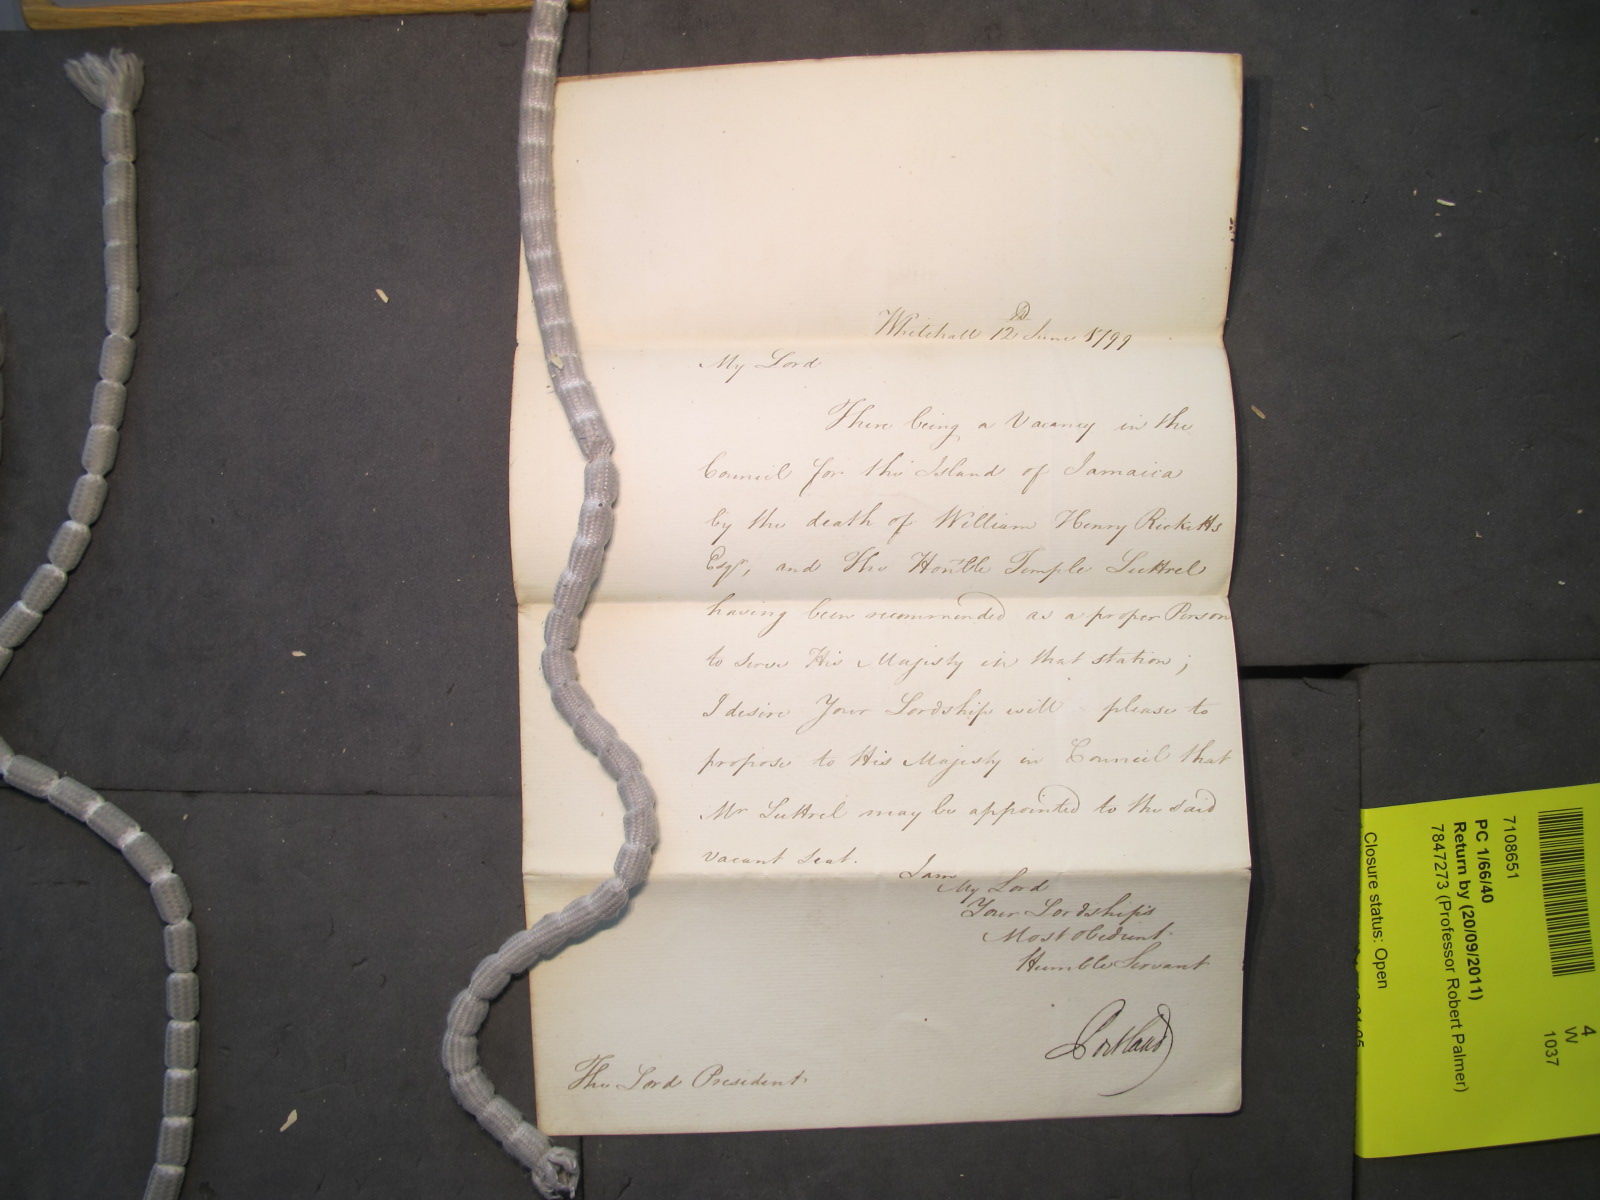 Whitehall 12th June 1799
My Lord
There being a Vacancy in the
Council for the Island of Jamaica
by the death of William Henry Ricketts
Esqr, and The Honble Temple Luttrel
having been recommended as a proper Person
to serve His Majesty in that station;
I desire Your Lordship will please to
propose to His Majesty in Council that
Mr Luttrel may be appointed to the said
vacant Seat.
I am
My Lord
Your Lordship's
Most obedient
Humble Servant
Portland
The Lord President
4
W
1037
7108651
PC 1/66/40
Return by (20/09/2011)
7847273 (Professor Robert Palmer)
Closure status: Open